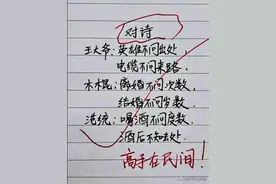 对诗
王大爷：英雄不问出处，
电缆不问来路．
木棍：离婚不问次数，
结婚不问岁数，
沈统：喝酒不问度数，
酒后不知去处．
高手在民间！